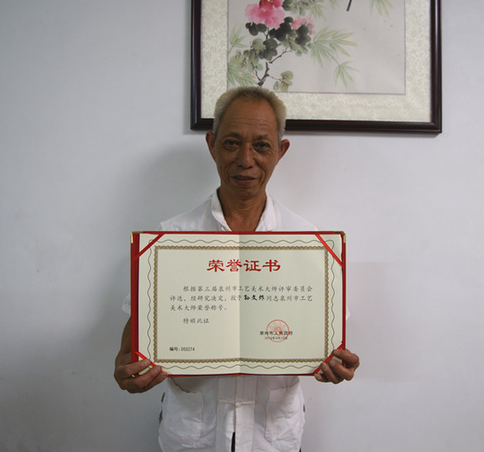 荣誉证书
根据第三届泉州市工艺美术大师评审委员会
评选，经研究决定，授予孙文炸同志泉州市工艺
美术大师荣誉称号。
特颁此证
泉州市人民政府
编号：202274